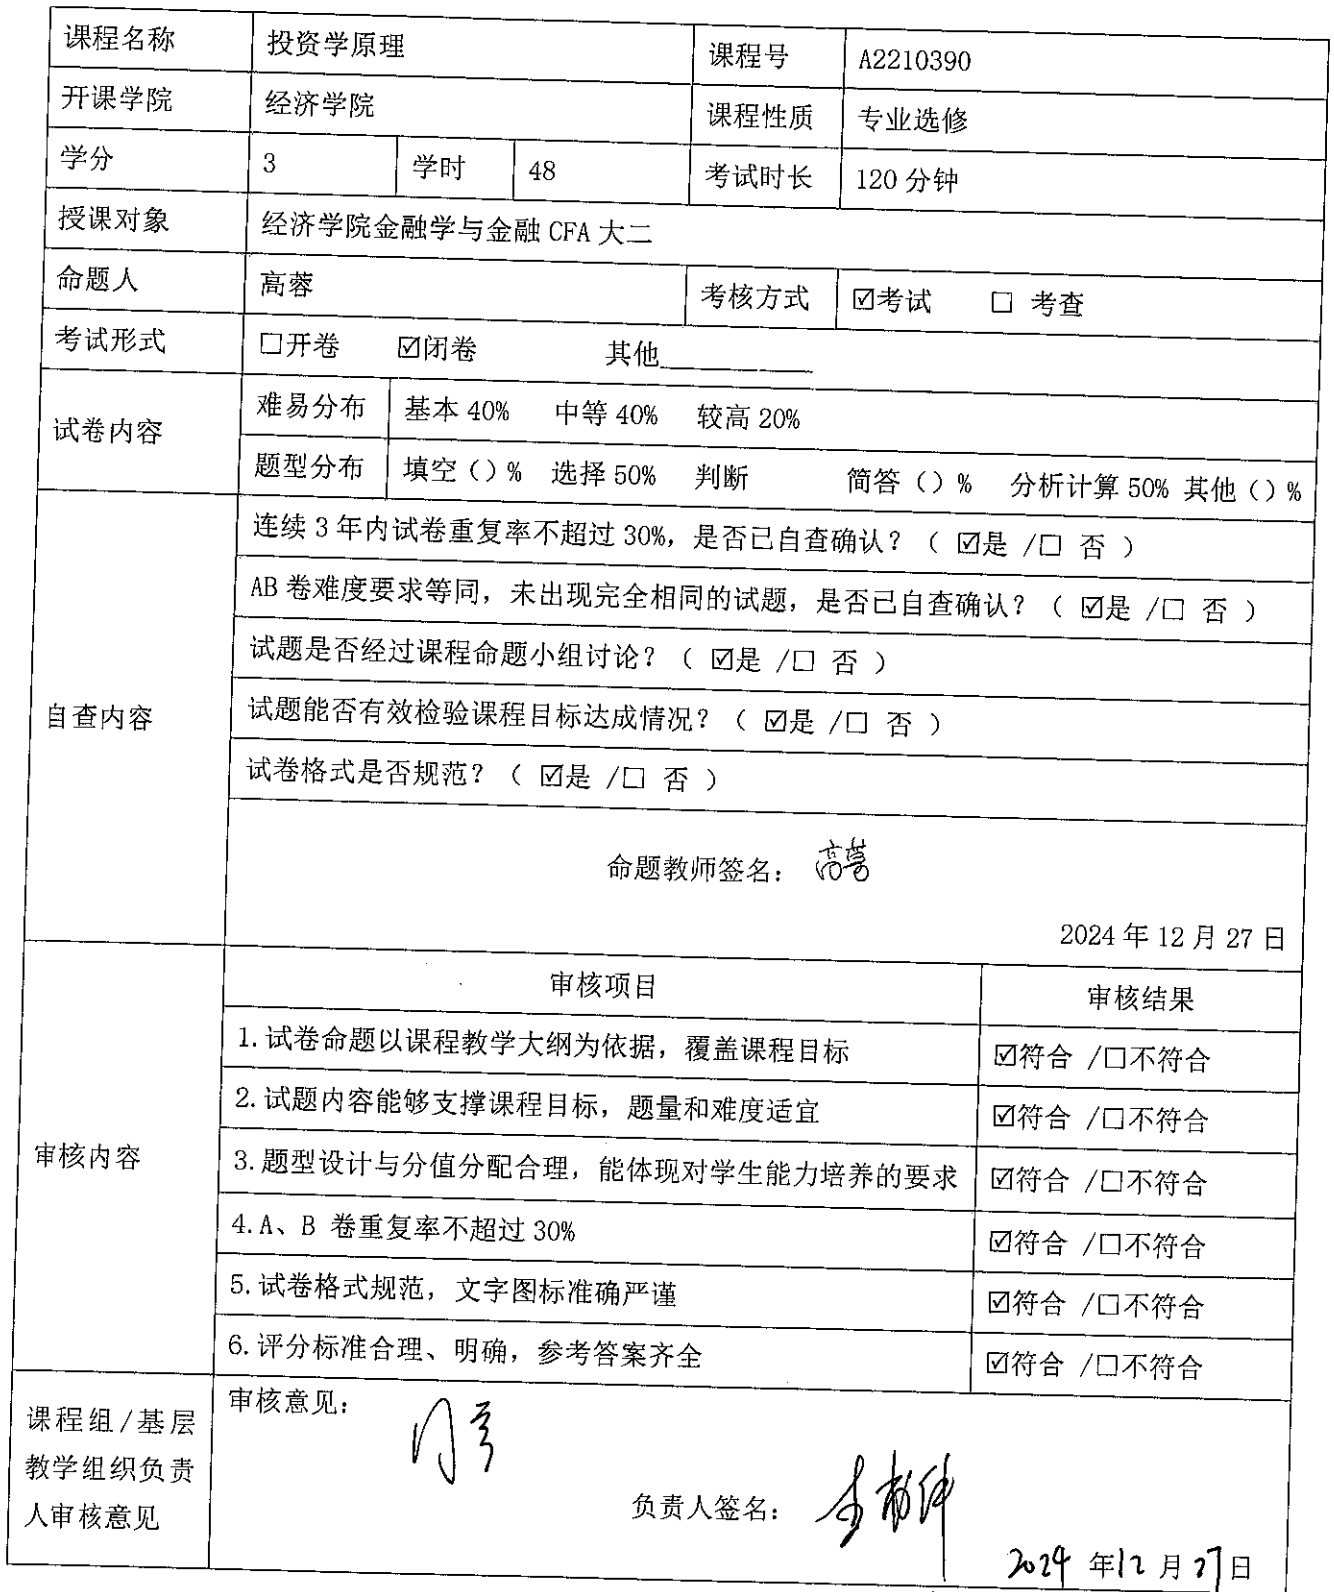 课程名称 投资学原理 课程号 A2210390
开课学院 经济学院 课程性质 专业选修
学分 3 学时 48 考试时长 120 分钟
授课对象 经济学院金融学与金融 CFA 大二
命题人 高蓉 考核方式 ☑考试 □ 考查
考试形式 □开卷 ☑闭卷 其他
试卷内容 难易分布 基本 40% 中等 40% 较高 20%
题型分布 填空（）% 选择 50% 判断 简答（）% 分析计算 50% 其他（）%
自查内容
连续 3 年内试卷重复率不超过 30%，是否已自查确认？（ ☑是 /□ 否 ）
AB 卷难度要求等同，未出现完全相同的试题，是否已自查确认？（ ☑是 /□ 否 ）
试题是否经过课程命题小组讨论？（ ☑是 /□ 否 ）
试题能否有效检验课程目标达成情况？（ ☑是 /□ 否 ）
试卷格式是否规范？（ ☑是 /□ 否 ）
命题教师签名： 高蓉
2024 年 12 月 27 日
审核内容
审核项目 审核结果
1.试卷命题以课程教学大纲为依据，覆盖课程目标 ☑符合 /□不符合
2.试题内容能够支撑课程目标，题量和难度适宜 ☑符合 /□不符合
3.题型设计与分值分配合理，能体现对学生能力培养的要求 ☑符合 /□不符合
4.A、B 卷重复率不超过 30% ☑符合 /□不符合
5.试卷格式规范，文字图标准确严谨 ☑符合 /□不符合
6.评分标准合理、明确，参考答案齐全 ☑符合 /□不符合
课程组/基层
教学组织负责
人审核意见
审核意见：
负责人签名：
2024 年 12 月 27 日